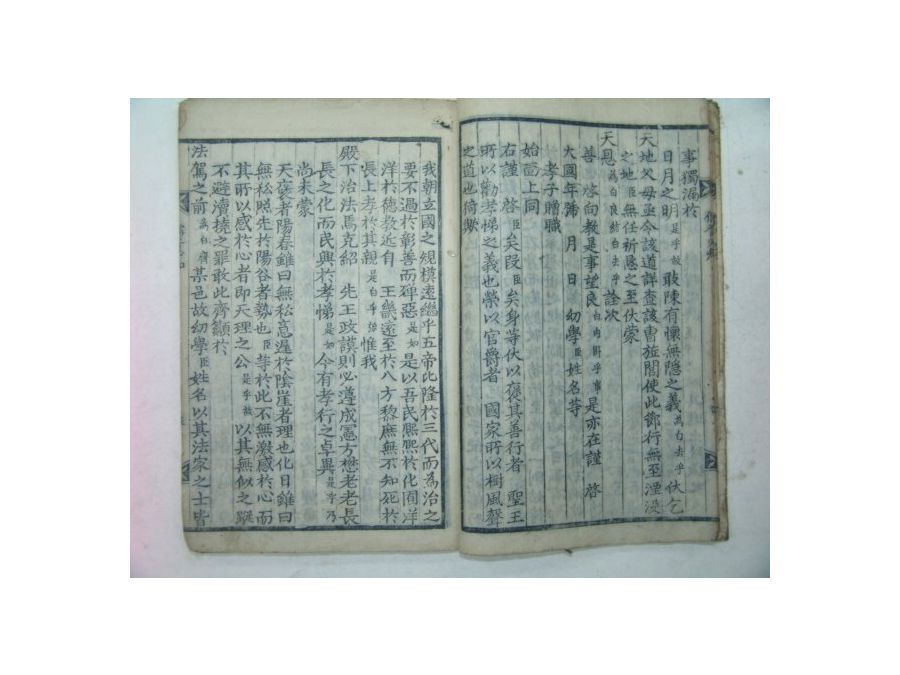 事獨漏於
日月之明 是乎故 敢陳有懷無隱之義 爲白去乎 伏乞
天地父母亟今該道詳查該曹旋聞使此節行無至湮沒
之地 臣 無任祈恳之至伏蒙
天恩 爲白良結白去乎 謹次
善 啓向教是事望良 白內臥乎事 是亦在謹 啓
大國年號 月 日 幼學 臣 姓名等
孝子贈職
始面上同
右謹 啓 臣 矣段 臣 矣身等伏以褒其善行者 聖王
所以勸孝悌之義也榮以官爵者 國家所以樹風聲
之道也倚歟
我朝立國之規模遠繼乎五帝比隆於三代而為治之
要不過於彰善而癉惡 是如 是以吾民熙熙於化囿洋
洋於德教近自 王畿遠至於八方黎庶無不知死於
長上孝於其親 是白乎 惟我
殿下治法焉克紹 先王政謨則必遵成憲方懋老老長
長之化而民興於孝悌 是如 今有孝行之卓異 是乎 乃
尚未蒙
天褒者陽春雖曰無私意遲於陰崖者理也化日雖曰
無私照先於陽谷者勢也 臣 等於此不無激感於心而
其所以感於心者即天理之公 是乎故 以其無似之蹤
不避瀆撓之罪敢此齊籲於
法駕之前 爲白齊 某邑故幼學 臣 姓名以其法家之士皆